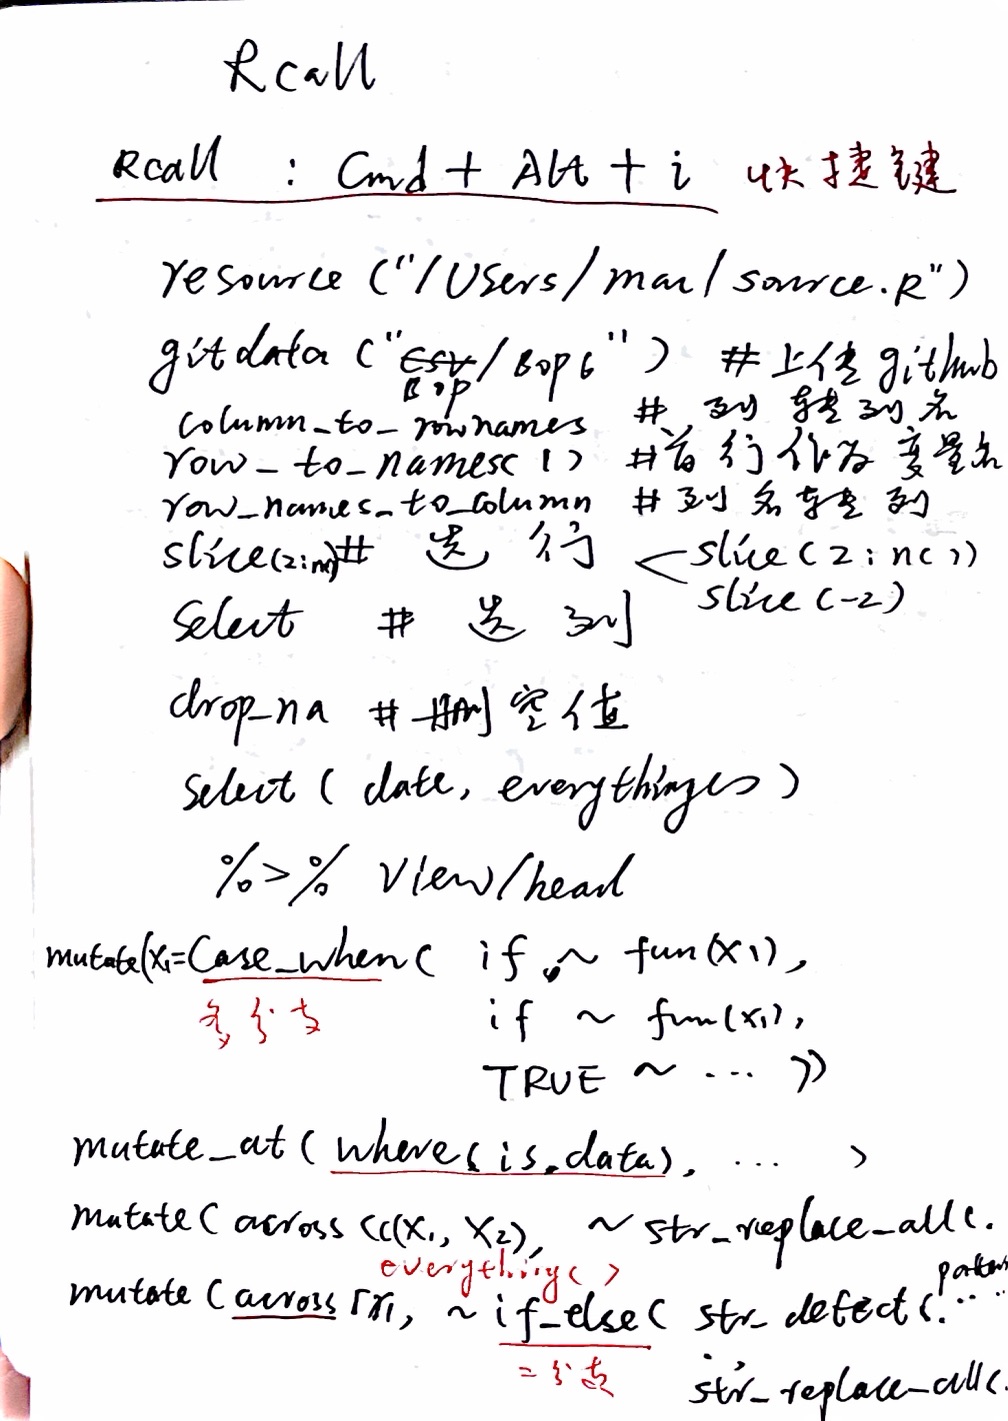 Rcall
Rcall : Cmd + Alt + i 快捷键
resource ("/Users/mac/source.R")
gitdata ("csv/Bop6") #上传github
Bop
column_to_rownames # 列转列名
row_to_names(1) #首行作为变量名
row_names_to_column #列名转列
slice(2:n()) # 选行 slice(2:n())
slice(-2)
Select # 选列
drop_na # 删空值
select (date, everything())
%>% View/head
mutate(X1=Case_when( if ~ fun(X1),
多分支 if ~ fun(X1),
TRUE ~ ... ))
mutate_at(where(is.data), ... )
mutate(across(c(X1, X2), ~ str_replace_all(.
everything()
mutate(across(X1, ~ if_else( str_detect(...
二分支 str_replace_all(.